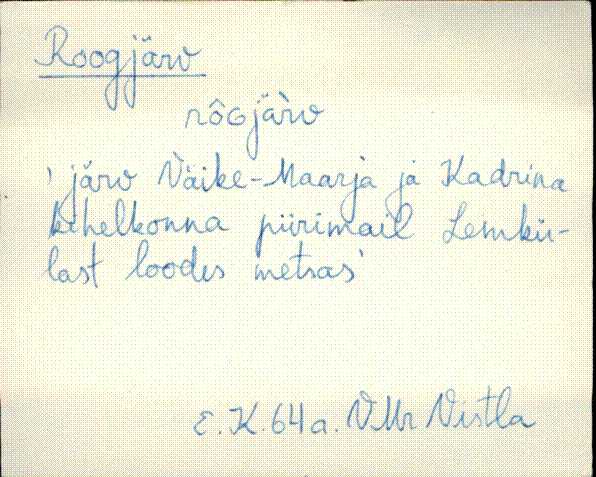 Roogjärv
rôogjäŕv
' järv Väike-Maarja ja Kadrina
kihelkonna piirimail Lemkü-
last loodes metsas'
E.K. 64 a. VMr Vistla